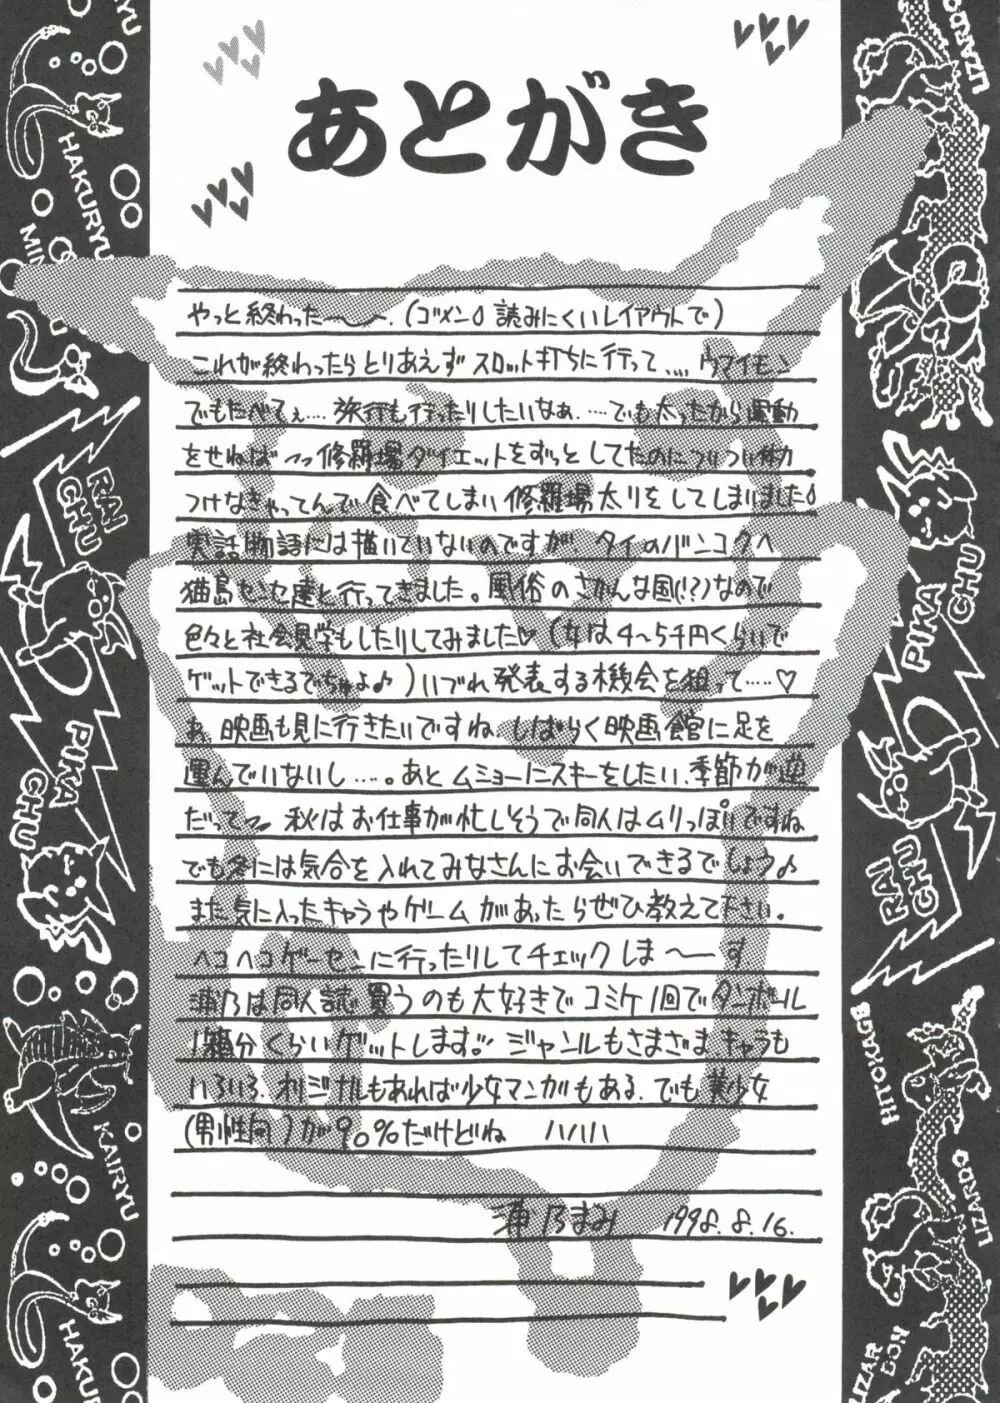 あとがき
やっと終わった〜〜.(ゴメン♂読みにくいレイアウトで)
これが終わったらとりあえずスロット打ちに行って、、、、ウマイモン
でもたべてぇ....旅行も行ったりしたいなぁ.....でも太ったから運動
をせねばーっ修羅場ダイエットをずっとしてたのについつい体力
つけなきゃってんで食べてしまい修羅場太りをしてしまいました♂
実話物語には描いていないのですが、タイのバンコクへ
猫島センセ達と行ってきました。風俗のさかんな国(!?)なので
色々と社会見学もしたりしてみました♡(女は4〜5千円くらいで
ゲットできるでちゅよ♪)いづれ発表する機会を狙って.....♡
あ、映画も見に行きたいですね、しばらく映画館に足を
運んでいないし.....。あとムショーにスキーをしたい、季節が逆
だってーっ 秋はお仕事が忙しそうで同人はムリっぽいですね
でも冬には気合を入れてみなさんにお会いできるでしょう♪
また気に入ったキャラやゲームがあったらぜひ教えて下さい。
ヘコヘコゲーセンに行ったりしてチェックしま〜〜す
浦乃は同人誌買うのも大好きでコミケ1回でダンボール
1箱分くらいゲットします。ジャンルもさまざま、キャラも
いろいろ、オリジナルもあれば少女マンガもある、でも美少女
(男性向)が90%だけどね ハハハ
浦乃まみ 1998.8.16.
HAKURYU
MIN
RAI
CHU
PIKA
CHU
KAIRYU
HAKURYU
LIZARDO
PIKA
CHU
RAI
CHU
HITOKAGE
LIZARDO
LIZAR
DON